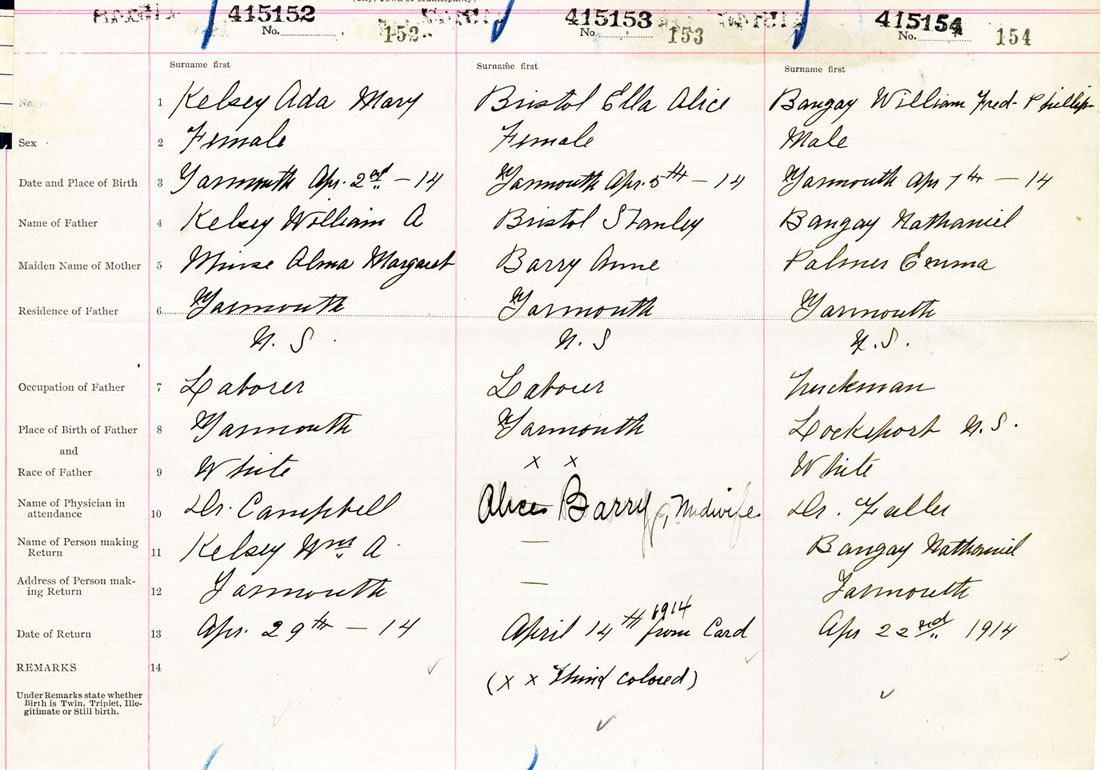 415152
No. 152
415153
No. 153
415154
No. 154
Surname first
Surname first
Surname first
Name 1 Kelsey Ada Mary
Bristol Ella Alice
Bangay William Fred- Phillip
Sex 2 Female
Female
Male
Date and Place of Birth 3 Yarmouth Apr. 2nd - 14
Yarmouth Apr. 5th - 14
Yarmouth Apr 7th - 14
Name of Father 4 Kelsey William A
Bristol Stanley
Bangay Nathaniel
Maiden Name of Mother 5 Alma Margaret
Barry Anne
Palmer Emma
Residence of Father 6 Yarmouth
Yarmouth
Yarmouth
N. S.
N. S
N. S.
Occupation of Father 7 Laborer
Laborer
Truckman
Place of Birth of Father 8 Yarmouth
Yarmouth
Lockeport N. S.
and
Race of Father 9 White
x x
White
Name of Physician in
attendance 10 Dr. Campbell
Alice Barry, Midwife
Dr. Fuller
Name of Person making
Return 11 Kelsey Wm A.
—
Bangay Nathaniel
Address of Person mak-
ing Return 12 Yarmouth
—
Yarmouth
Date of Return 13 Apr. 29th - 14
April 14th 1914 from Card
Apr 22nd 1914
REMARKS 14
(x x think colored)
Under Remarks state whether
Birth is Twin, Triplet, Ille-
gitimate or Still birth.